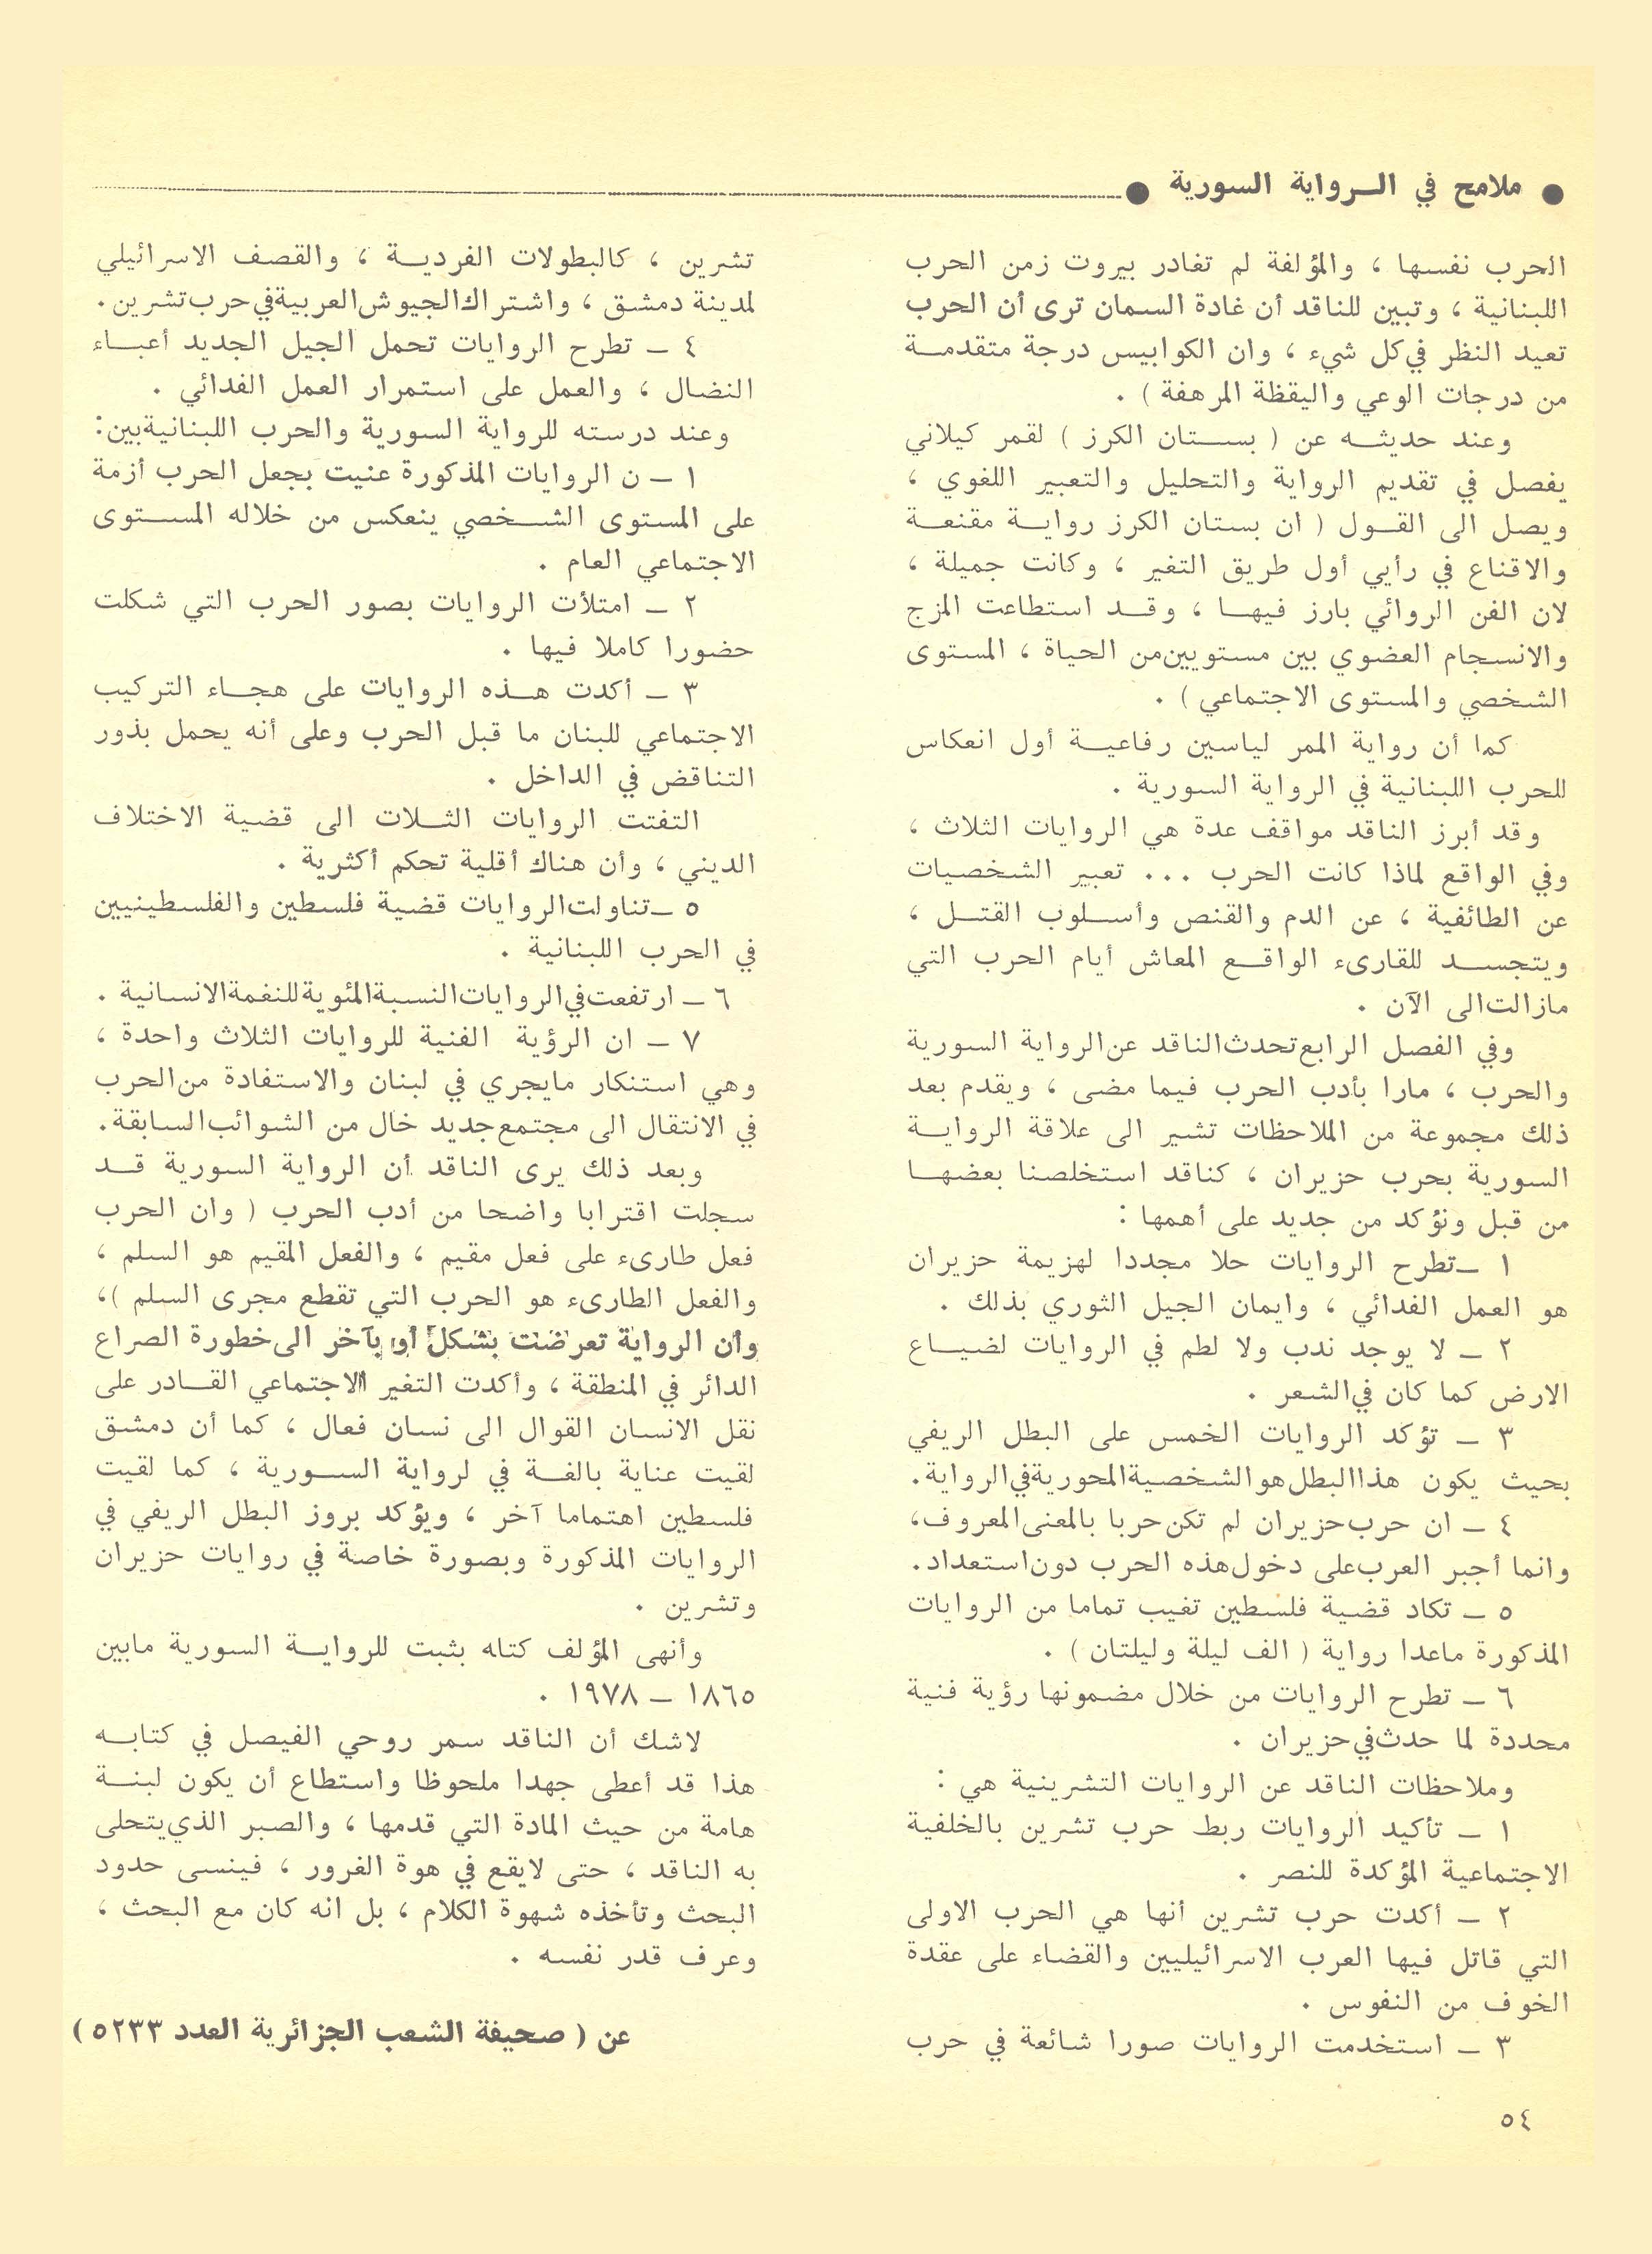 ● ملامح في الـرواية السورية ●
الحرب نفسها ، والمؤلفة لم تغادر بيروت زمن الحرب
اللبنانية ، وتبين للناقد أن غادة السمان ترى أن الحرب
تعيد النظر في كل شيء ، وان الكوابيس درجة متقدمة
من درجات الوعي واليقظة المرهفة ) .
وعند حديثه عن ( بستان الكرز ) لقمر كيلاني
يفصل في تقديم الرواية والتحليل والتعبير اللغوي ،
ويصل الى القول ( ان بستان الكرز رواية مقنعة
والاقناع في رأيي أول طريق التغير ، وكانت جميلة ،
لان الفن الروائي بارز فيها ، وقد استطاعت المزج
والانسجام العضوي بين مستويين من الحياة ، المستوى
الشخصي والمستوى الاجتماعي ) .
كما أن رواية الممر لياسين رفاعية أول انعكاس
للحرب اللبنانية في الرواية السورية .
وقد أبرز الناقد مواقف عدة هي الروايات الثلاث ،
وفي الواقع لماذا كانت الحرب ... تعبير الشخصيات
عن الطائفية ، عن الدم والقنص وأسلوب القتل ،
ويتجسد للقارىء الواقع المعاش أيام الحرب التي
مازالت الى الآن .
وفي الفصل الرابع تحدث الناقد عن الرواية السورية
والحرب ، مارا بأدب الحرب فيما مضى ، ويقدم بعد
ذلك مجموعة من الملاحظات تشير الى علاقة الرواية
السورية بحرب حزيران ، كناقد استخلصنا بعضها
من قبل ونؤكد من جديد على أهمها :
١ ـ تطرح الروايات حلا مجددا لهزيمة حزيران
هو العمل الفدائي ، وايمان الجيل الثوري بذلك .
٢ ـ لا يوجد ندب ولا لطم في الروايات لضياع
الارض كما كان في الشعر .
٣ ـ تؤكد الروايات الخمس على البطل الريفي
بحيث يكون هذا البطل هو الشخصية المحورية في الرواية .
٤ ـ ان حرب حزيران لم تكن حربا بالمعنى المعروف ،
وانما أجبر العرب على دخول هذه الحرب دون استعداد .
٥ ـ تكاد قضية فلسطين تغيب تماما من الروايات
المذكورة ماعدا رواية ( الف ليلة وليلتان ) .
٦ ـ تطرح الروايات من خلال مضمونها رؤية فنية
محددة لما حدث في حزيران .
وملاحظات الناقد عن الروايات التشرينية هي :
١ ـ تأكيد الروايات ربط حرب تشرين بالخلفية
الاجتماعية المؤكدة للنصر .
٢ ـ أكدت حرب تشرين أنها هي الحرب الاولى
التي قاتل فيها العرب الاسرائيليين والقضاء على عقدة
الخوف من النفوس .
٣ ـ استخدمت الروايات صورا شائعة في حرب
تشرين ، كالبطولات الفردية ، والقصف الاسرائيلي
لمدينة دمشق ، واشتراك الجيوش العربية في حرب تشرين .
٤ ـ تطرح الروايات تحمل الجيل الجديد أعباء
النضال ، والعمل على استمرار العمل الفدائي .
وعند درسته للرواية السورية والحرب اللبنانية بين :
١ ـ ن الروايات المذكورة عنيت بجعل الحرب أزمة
على المستوى الشخصي ينعكس من خلاله المستوى
الاجتماعي العام .
٢ ـ امتلأت الروايات بصور الحرب التي شكلت
حضورا كاملا فيها .
٣ ـ أكدت هذه الروايات على هجاء التركيب
الاجتماعي للبنان ما قبل الحرب وعلى أنه يحمل بذور
التناقض في الداخل .
التفتت الروايات الثلاث الى قضية الاختلاف
الديني ، وأن هناك أقلية تحكم أكثرية .
٥ ـ تناولت الروايات قضية فلسطين والفلسطينيين
في الحرب اللبنانية .
٦ ـ ارتفعت في الروايات النسبة المئوية للنغمة الانسانية .
٧ ـ ان الرؤية الفنية للروايات الثلاث واحدة ،
وهي استنكار مايجري في لبنان والاستفادة من الحرب
في الانتقال الى مجتمع جديد خال من الشوائب السابقة .
وبعد ذلك يرى الناقد أن الرواية السورية قد
سجلت اقترابا واضحا من أدب الحرب ( وان الحرب
فعل طارىء على فعل مقيم ، والفعل المقيم هو السلم ،
والفعل الطارىء هو الحرب التي تقطع مجرى السلم ) ،
وأن الرواية تعرضت بشكل أو بآخر الى خطورة الصراع
الدائر في المنطقة ، وأكدت التغير الاجتماعي القادر على
نقل الانسان القوال الى نسان فعال ، كما أن دمشق
لقيت عناية بالغة في لرواية السورية ، كما لقيت
فلسطين اهتماما آخر ، ويؤكد بروز البطل الريفي في
الروايات المذكورة وبصورة خاصة في روايات حزيران
وتشرين .
وأنهى المؤلف كتله بثبت للرواية السورية مابين
١٨٦٥ ـ ١٩٧٨ .
لاشك أن الناقد سمر روحي الفيصل في كتابه
هذا قد أعطى جهدا ملحوظا واستطاع أن يكون لبنة
هامة من حيث المادة التي قدمها ، والصبر الذي يتحلى
به الناقد ، حتى لايقع في هوة الغرور ، فينسى حدود
البحث وتأخذه شهوة الكلام ، بل انه كان مع البحث ،
وعرف قدر نفسه .
عن ( صحيفة الشعب الجزائرية العدد ٥٢٣٣ )
٥٤